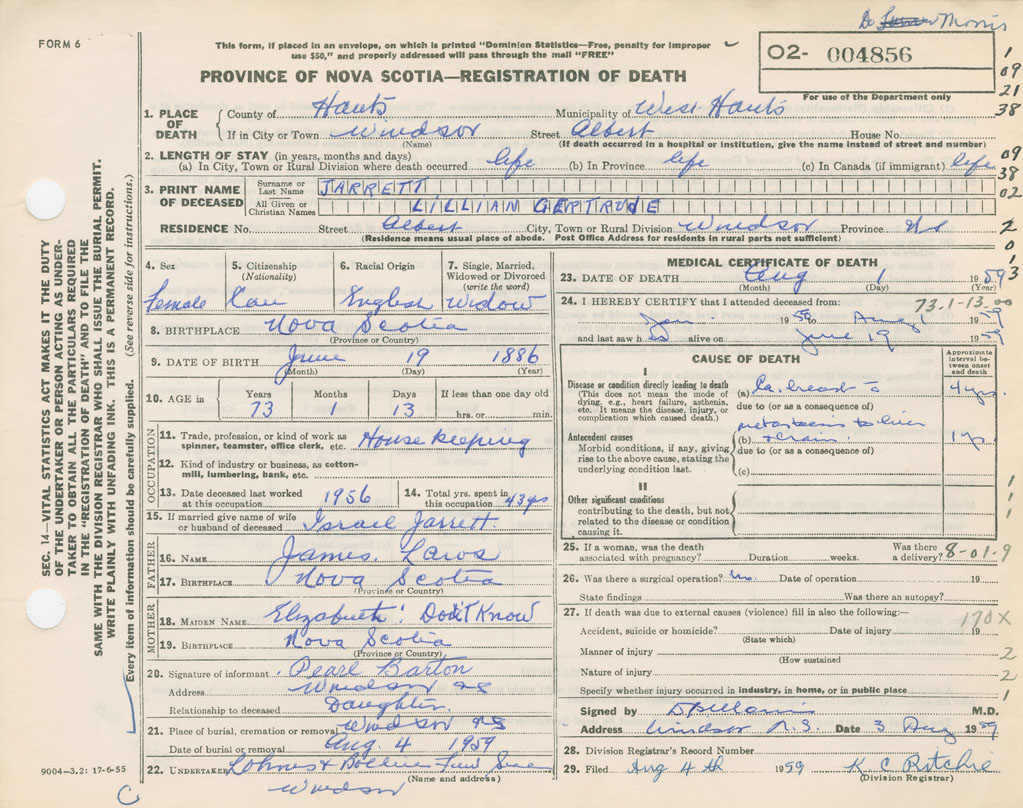 Morris
FORM 6
This form, if placed in an envelope, on which is printed "Dominion Statistics—Free, penalty for improper
use $50," and properly addressed will pass through the mail "FREE"
O2- 004856
For use of the Department only
PROVINCE OF NOVA SCOTIA—REGISTRATION OF DEATH
1 09 21 38
1. PLACE OF DEATH County of Hants Municipality of West Hants
If in City or Town Windsor Street Albert House No.
(Name) (If death occurred in a hospital or institution, give the name instead of street and number)
2. LENGTH OF STAY (in years, months and days)
(a) In City, Town or Rural Division where death occurred life (b) In Province life (c) In Canada (if immigrant) life
09 38 02
3. PRINT NAME OF DECEASED Surname or Last Name JARRETT
All Given or Christian Names LILLIAN GERTRUDE
RESIDENCE No. Street Albert City, Town or Rural Division Windsor Province NS
(Residence means usual place of abode. Post Office Address for residents in rural parts not sufficient)
2 0 1 3
SEC. 14—VITAL STATISTICS ACT MAKES IT THE DUTY
OF THE UNDERTAKER OR PERSON ACTING AS UNDER-
TAKER TO OBTAIN ALL THE PARTICULARS REQUIRED
IN THE "REGISTRATION OF DEATH" AND TO FILE THE
SAME WITH THE DIVISION REGISTRAR WHO SHALL ISSUE THE BURIAL PERMIT.
WRITE PLAINLY WITH UNFADING INK. THIS IS A PERMANENT RECORD.
Every item of information should be carefully supplied. (See reverse side for instructions.)
4. Sex 5. Citizenship (Nationality) 6. Racial Origin 7. Single, Married, Widowed or Divorced (write the word)
Female Can English Widow
8. BIRTHPLACE Nova Scotia
(Province or Country)
9. DATE OF BIRTH June 19 1886
(Month) (Day) (Year)
10. AGE in Years Months Days If less than one day old
73 1 13 hrs. or min.
OCCUPATION
11. Trade, profession, or kind of work as spinner, teamster, office clerk, etc. House keeping
12. Kind of industry or business, as cotton-mill, lumbering, bank, etc.
13. Date deceased last worked at this occupation 1956 14. Total yrs. spent in this occupation 43 yrs
15. If married give name of wife or husband of deceased Israel Jarrett
FATHER
16. NAME James Laws
17. BIRTHPLACE Nova Scotia
(Province or Country)
MOTHER
18. MAIDEN NAME Elizabeth: Don't Know
19. BIRTHPLACE Nova Scotia
(Province or Country)
20. Signature of informant Pearl Barton
Address Windsor NS
Relationship to deceased Daughter
21. Place of burial, cremation or removal Windsor NS
Date of burial or removal Aug. 4 1959
22. UNDERTAKER
(Name and address)
Windsor
9004-3.2: 17-6-55
C
MEDICAL CERTIFICATE OF DEATH
23. DATE OF DEATH Aug 1 1959
(Month) (Day) (Year)
24. I HEREBY CERTIFY that I attended deceased from: 73.1-13.00
Jan 1959 to Aug 1 1959
and last saw h es alive on June 19 1959
CAUSE OF DEATH
Approximate interval between onset and death
I
Disease or condition directly leading to death
(This does not mean the mode of dying, e.g., heart failure, asthenia, etc. It means the disease, injury, or complication which caused death.)
(a) Ca. breast 4 yrs.
due to (or as a consequence of)
metastasis to liver
Antecedent causes
Morbid conditions, if any, giving rise to the above cause, stating the underlying condition last.
(b) + brain. 1 yr.
due to (or as a consequence of)
(c)
II
Other significant conditions contributing to the death, but not related to the disease or condition causing it.
1 1
25. If a woman, was the death associated with pregnancy? Duration weeks. Was there a delivery? 8-01-9
26. Was there a surgical operation? No. Date of operation 19
State findings Was there an autopsy?
27. If death was due to external causes (violence) fill in also the following:— 170X
Accident, suicide or homicide? Date of injury 19
(State which)
Manner of injury 2
(How sustained)
Nature of injury 2
Specify whether injury occurred in industry, in home, or in public place 1
Signed by M.D.
Address Windsor N.S. Date 3 Aug 1959
28. Division Registrar's Record Number
29. Filed Aug 4th 1959 K C Ritchie
(Division Registrar)